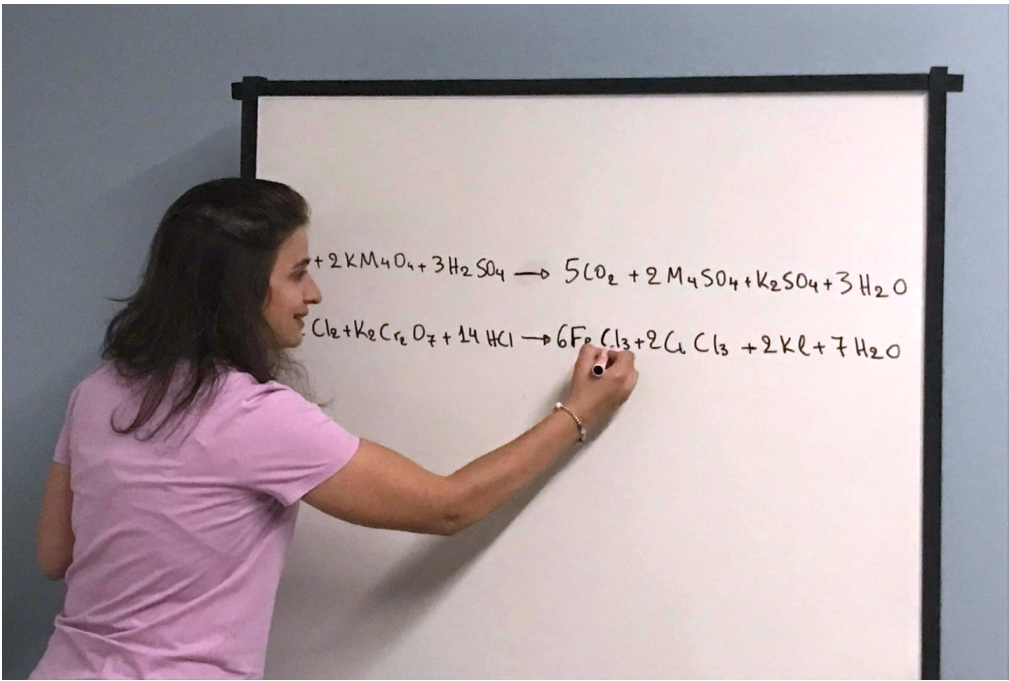 + 2KMnO₄ + 3H₂SO₄ → 5CO₂ + 2MnSO₄ + K₂SO₄ + 3H₂O
Cl₂ + K₂Cr₂O₇ + 14HCl → 6FeCl₃ + 2CrCl₃ + 2KCl + 7H₂O